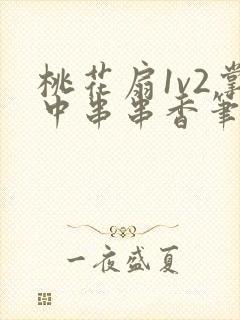 桃花扇1v2掌
中串串香笔
一夜盛夏